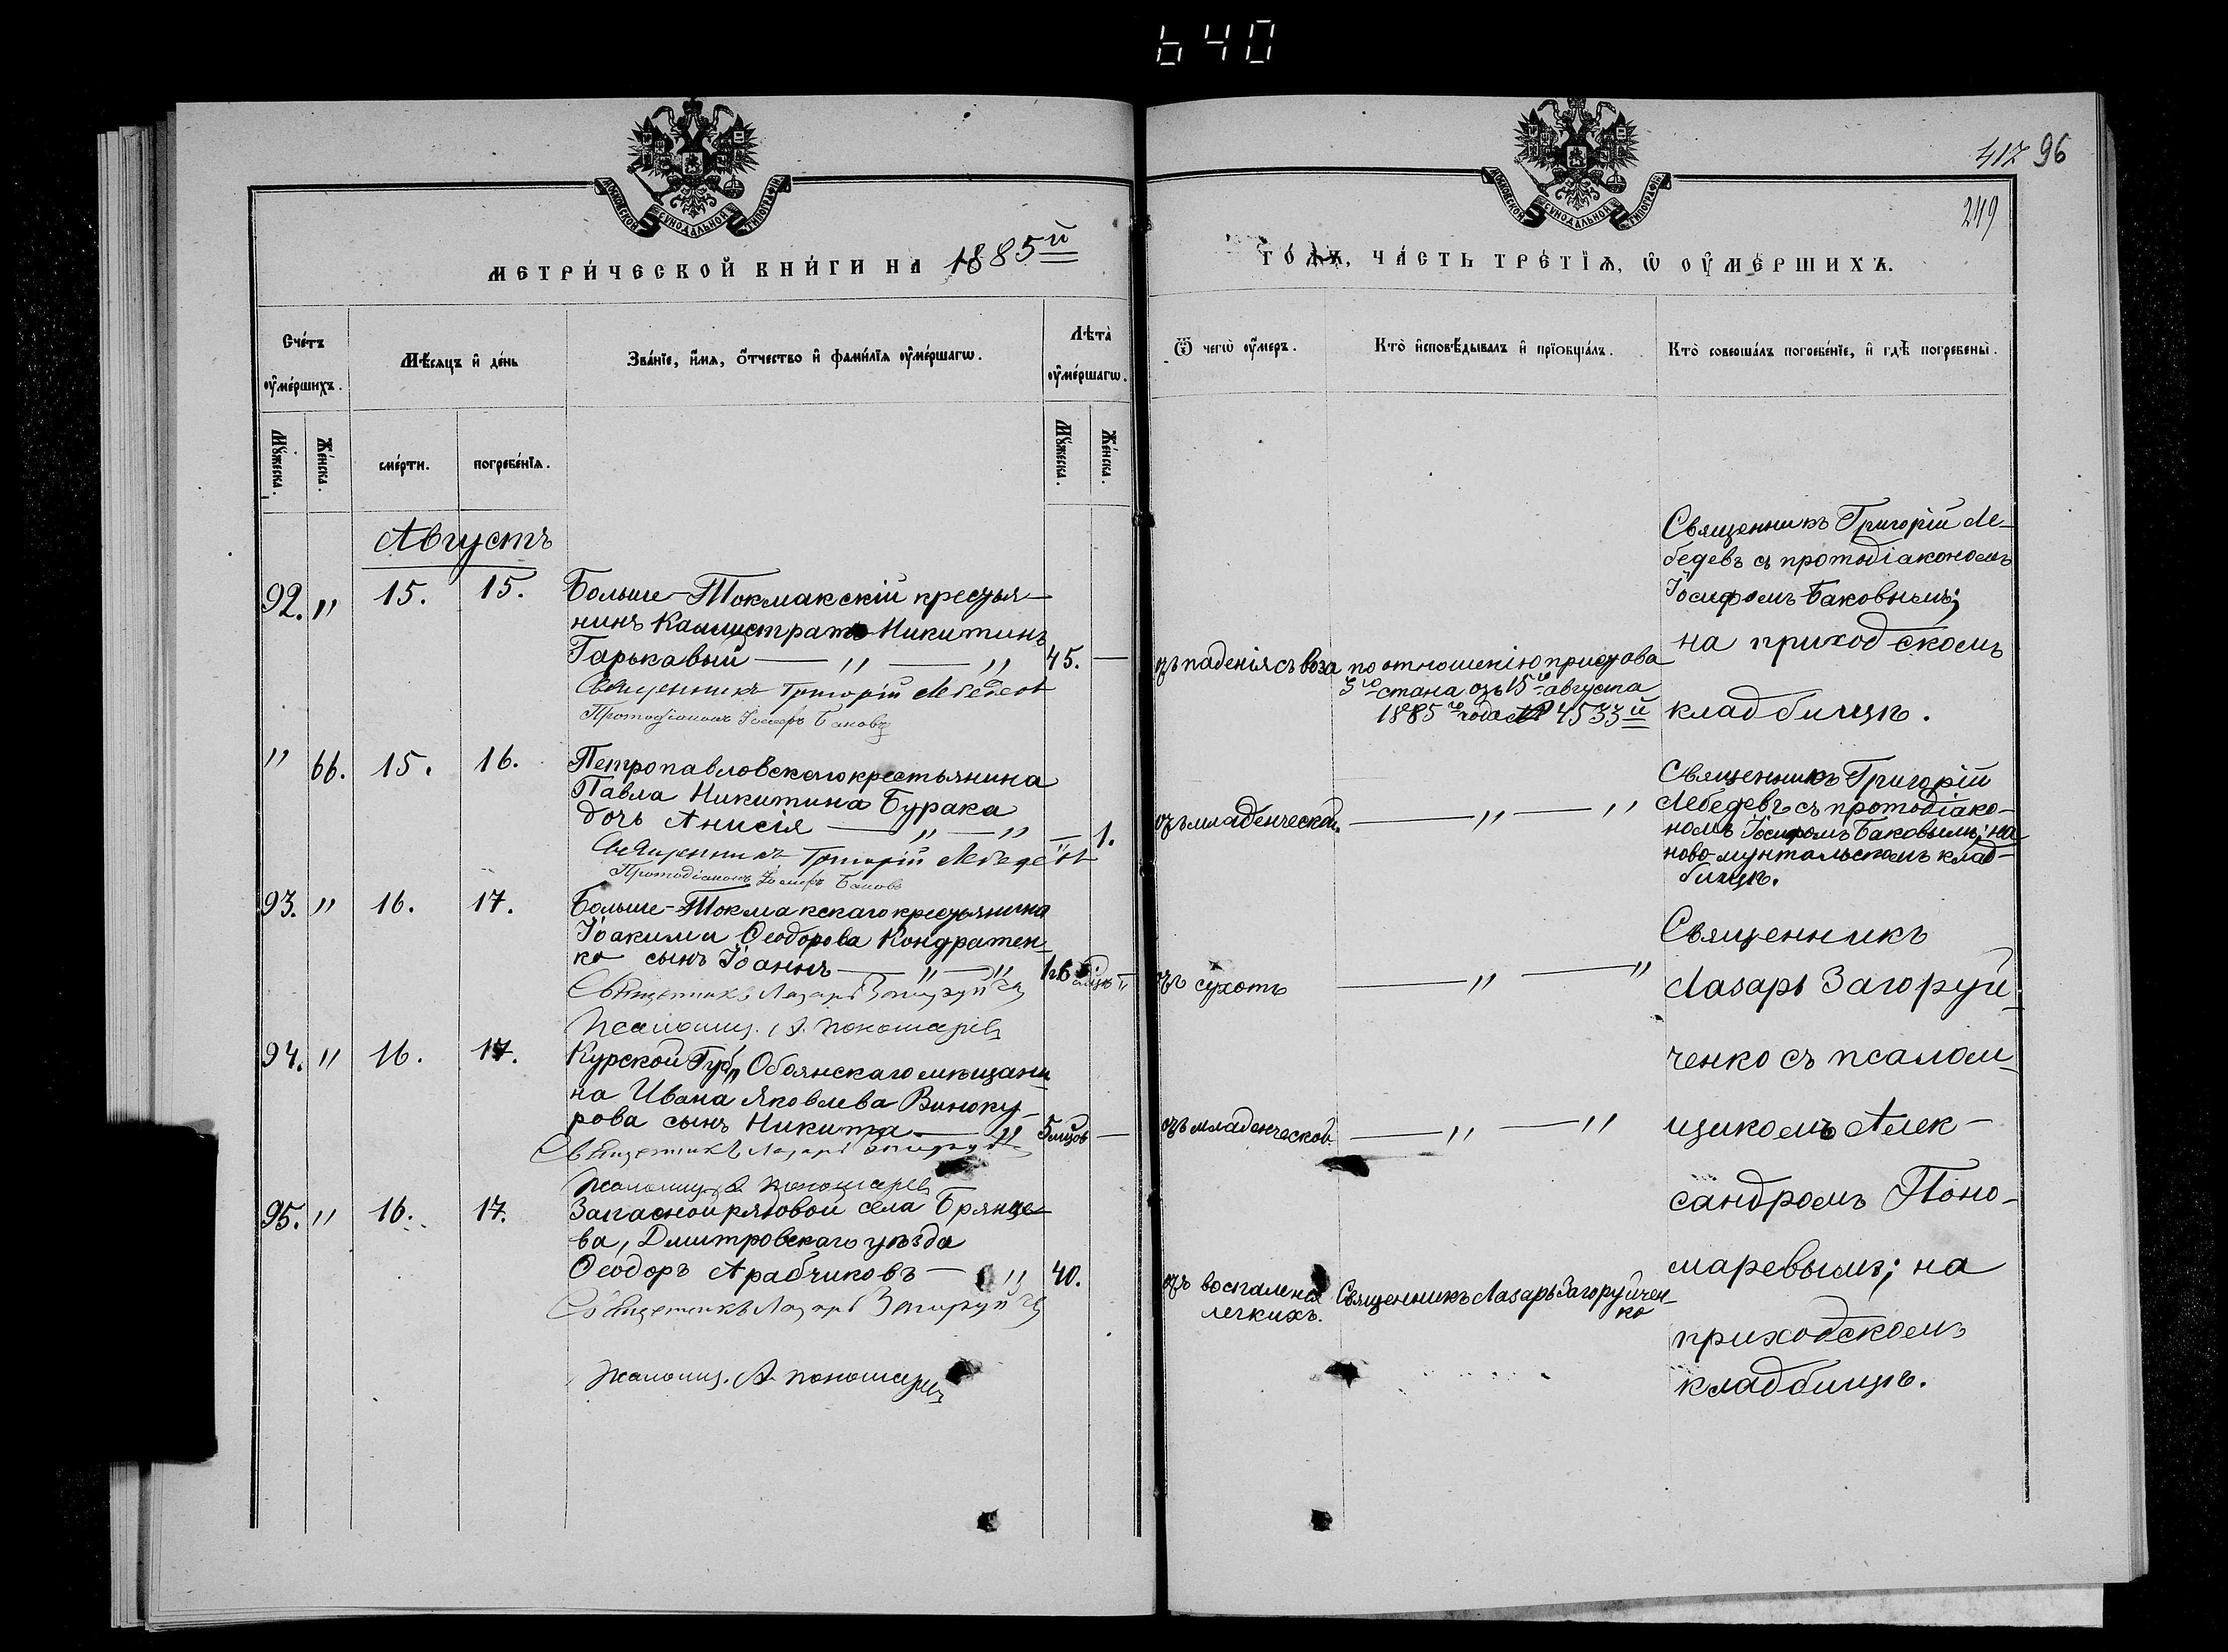 640
417 96
249
МОСКОВСКОЙ СѴНОДАЛЬНОЙ ТИПОГРАФІИ
МОСКОВСКОЙ СѴНОДАЛЬНОЙ ТИПОГРАФІИ
МЕТРИ́ЧЕСКОЙ КНИ́ГИ НА 1885й
ГОДЪ, ЧА́СТЬ ТРЕ́ТІѦ, Ѡ҆ ОУ҆МЕ́РШИХЪ.
Сче́тъ
оу҆ме́ршихъ.
Мꙋ́жеска.
Же́нска.
Мѣ́сѧцъ и҆ де́нь
сме́рти.
погребе́нїѧ.
Зва́нїе, и҆́мѧ, ѻ҆́тчество и҆ фами́лїѧ оу҆ме́ршагѡ.
Лѣта̀
оу҆ме́ршагѡ.
Мꙋ́жеска.
Же́нска.
Ѿ чегѡ̀ оу҆́меръ.
Кто̀ и҆сповѣ́дывалъ и҆ прїѡбща́лъ.
Кто̀ соверша́лъ погребе́нїе, и҆ гдѣ̀ погребены̀.
Августъ
92. " 15. 15.
Больше-Токмакскій крестья-
нинъ Каллистратъ Никитинъ
Гарькавый — " — " 45. —
Священникъ Григорій Лебедевъ
Протодіаконъ Іосифъ Баковъ
отъ паденія съ воза
по отношенію пристава
3го стана отъ 15го августа
1885го года № 4533й
Священникъ Григорій Ле-
бедевъ съ протодіакономъ
Іосифомъ Баковымъ;
на приходскомъ
кладбищѣ.
" 66. 15. 16.
Петропавловскаго крестьянина
Павла Никитина Бурака
дочь Анисія — " — " — 1.
Священникъ Григорій Лебедевъ
Протодіаконъ Іосифъ Баковъ
отъ младенческой. — " — "
Священникъ Григорій
Лебедевъ съ протодіако-
номъ Іосифомъ Баковымъ; на
ново-мунтальскомъ клад-
бищѣ.
93. " 16. 17.
Больше-Токмакскаго крестьянина
Іоакима Ѳеодорова Кондратен-
ко сынъ Іоаннъ — " — "
Священникъ Лазарь Загоруйч
Псаломщ. А. Пономаревъ
отъ сухотъ — " — "
Священникъ
Лазарь Загоруй-
ченко съ псалом-
щикомъ Алек-
сандромъ Поно-
маревымъ; на
приходскомъ
кладбищѣ.
94. " 16. 17.
Курской Губ. Обоянскаго мѣщани-
на Ивана Яковлева Виноку-
рова сынъ Никита — " 5 мцовъ —
Священникъ Лазарь Загоруйч
Псаломщ. А. Пономаревъ
отъ младенческой — " — "
95. " 16. 17.
Запасной рядовой села Брянце-
ва, Дмитровскаго уѣзда
Ѳеодоръ Арабчиковъ — " 40.
Священникъ Лазарь Загоруйч
Псаломщ. А. Пономаревъ
отъ воспаленія
легкихъ.
Священникъ Лазарь Загоруйчен-
ко